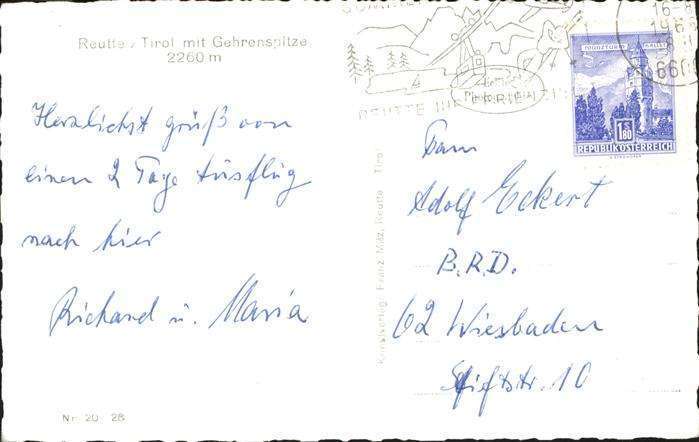 Reutte / Tirol mit Gehrenspitze
2260 m
Herzlichst grüßt von
einen 2 Tage Ausflug
nach hier
Richard u. Maria
Nr. 20 28
Kunstverlag Franz Milz, Reutte - Tirol
SOMMER
REUTTE
FERIEN
MÜNZTURM HALL I.T.
1.80
REPUBLIK ÖSTERREICH
6600
Fam
Adolf Eckert
B.R.D.
62 Wiesbaden
Stiftstr. 10